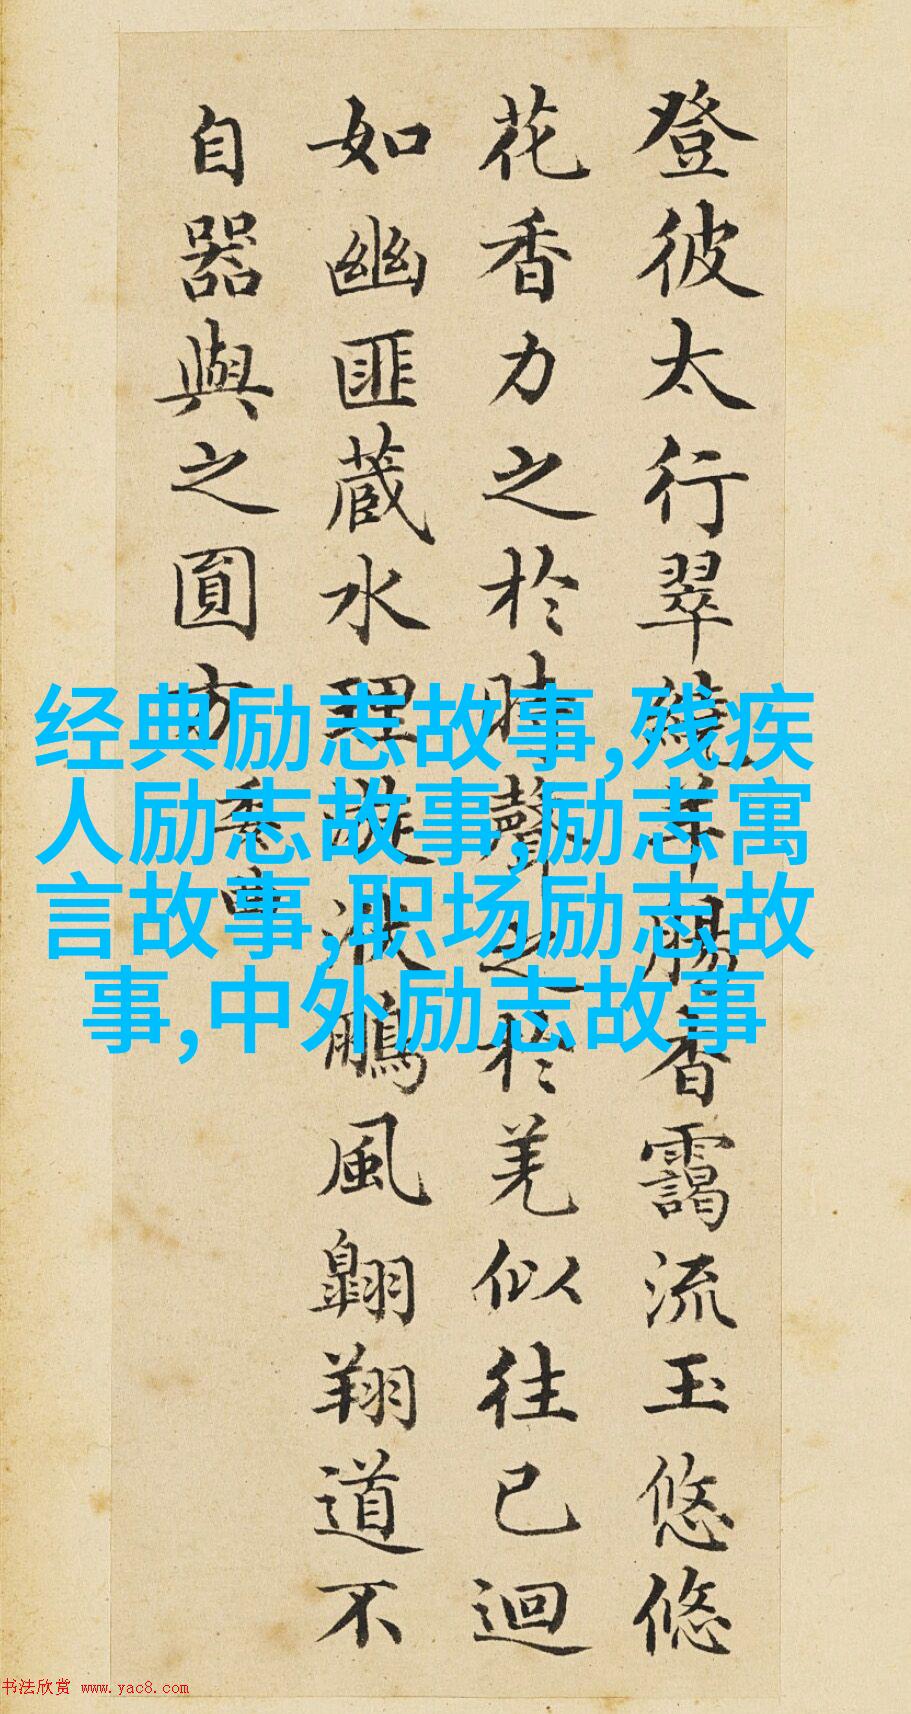 登彼太行翠繞羊腸杳靄流玉悠悠
花香力之於時聲之於羌似往已迴
如幽匪蔵水理漩洑鵬風翺翔道不
自器與之圓方 委曲
经典励志故事,残疾
人励志故事,励志寓
言故事,职场励志故
事,中外励志故事
书法欣赏 www.yac8.com